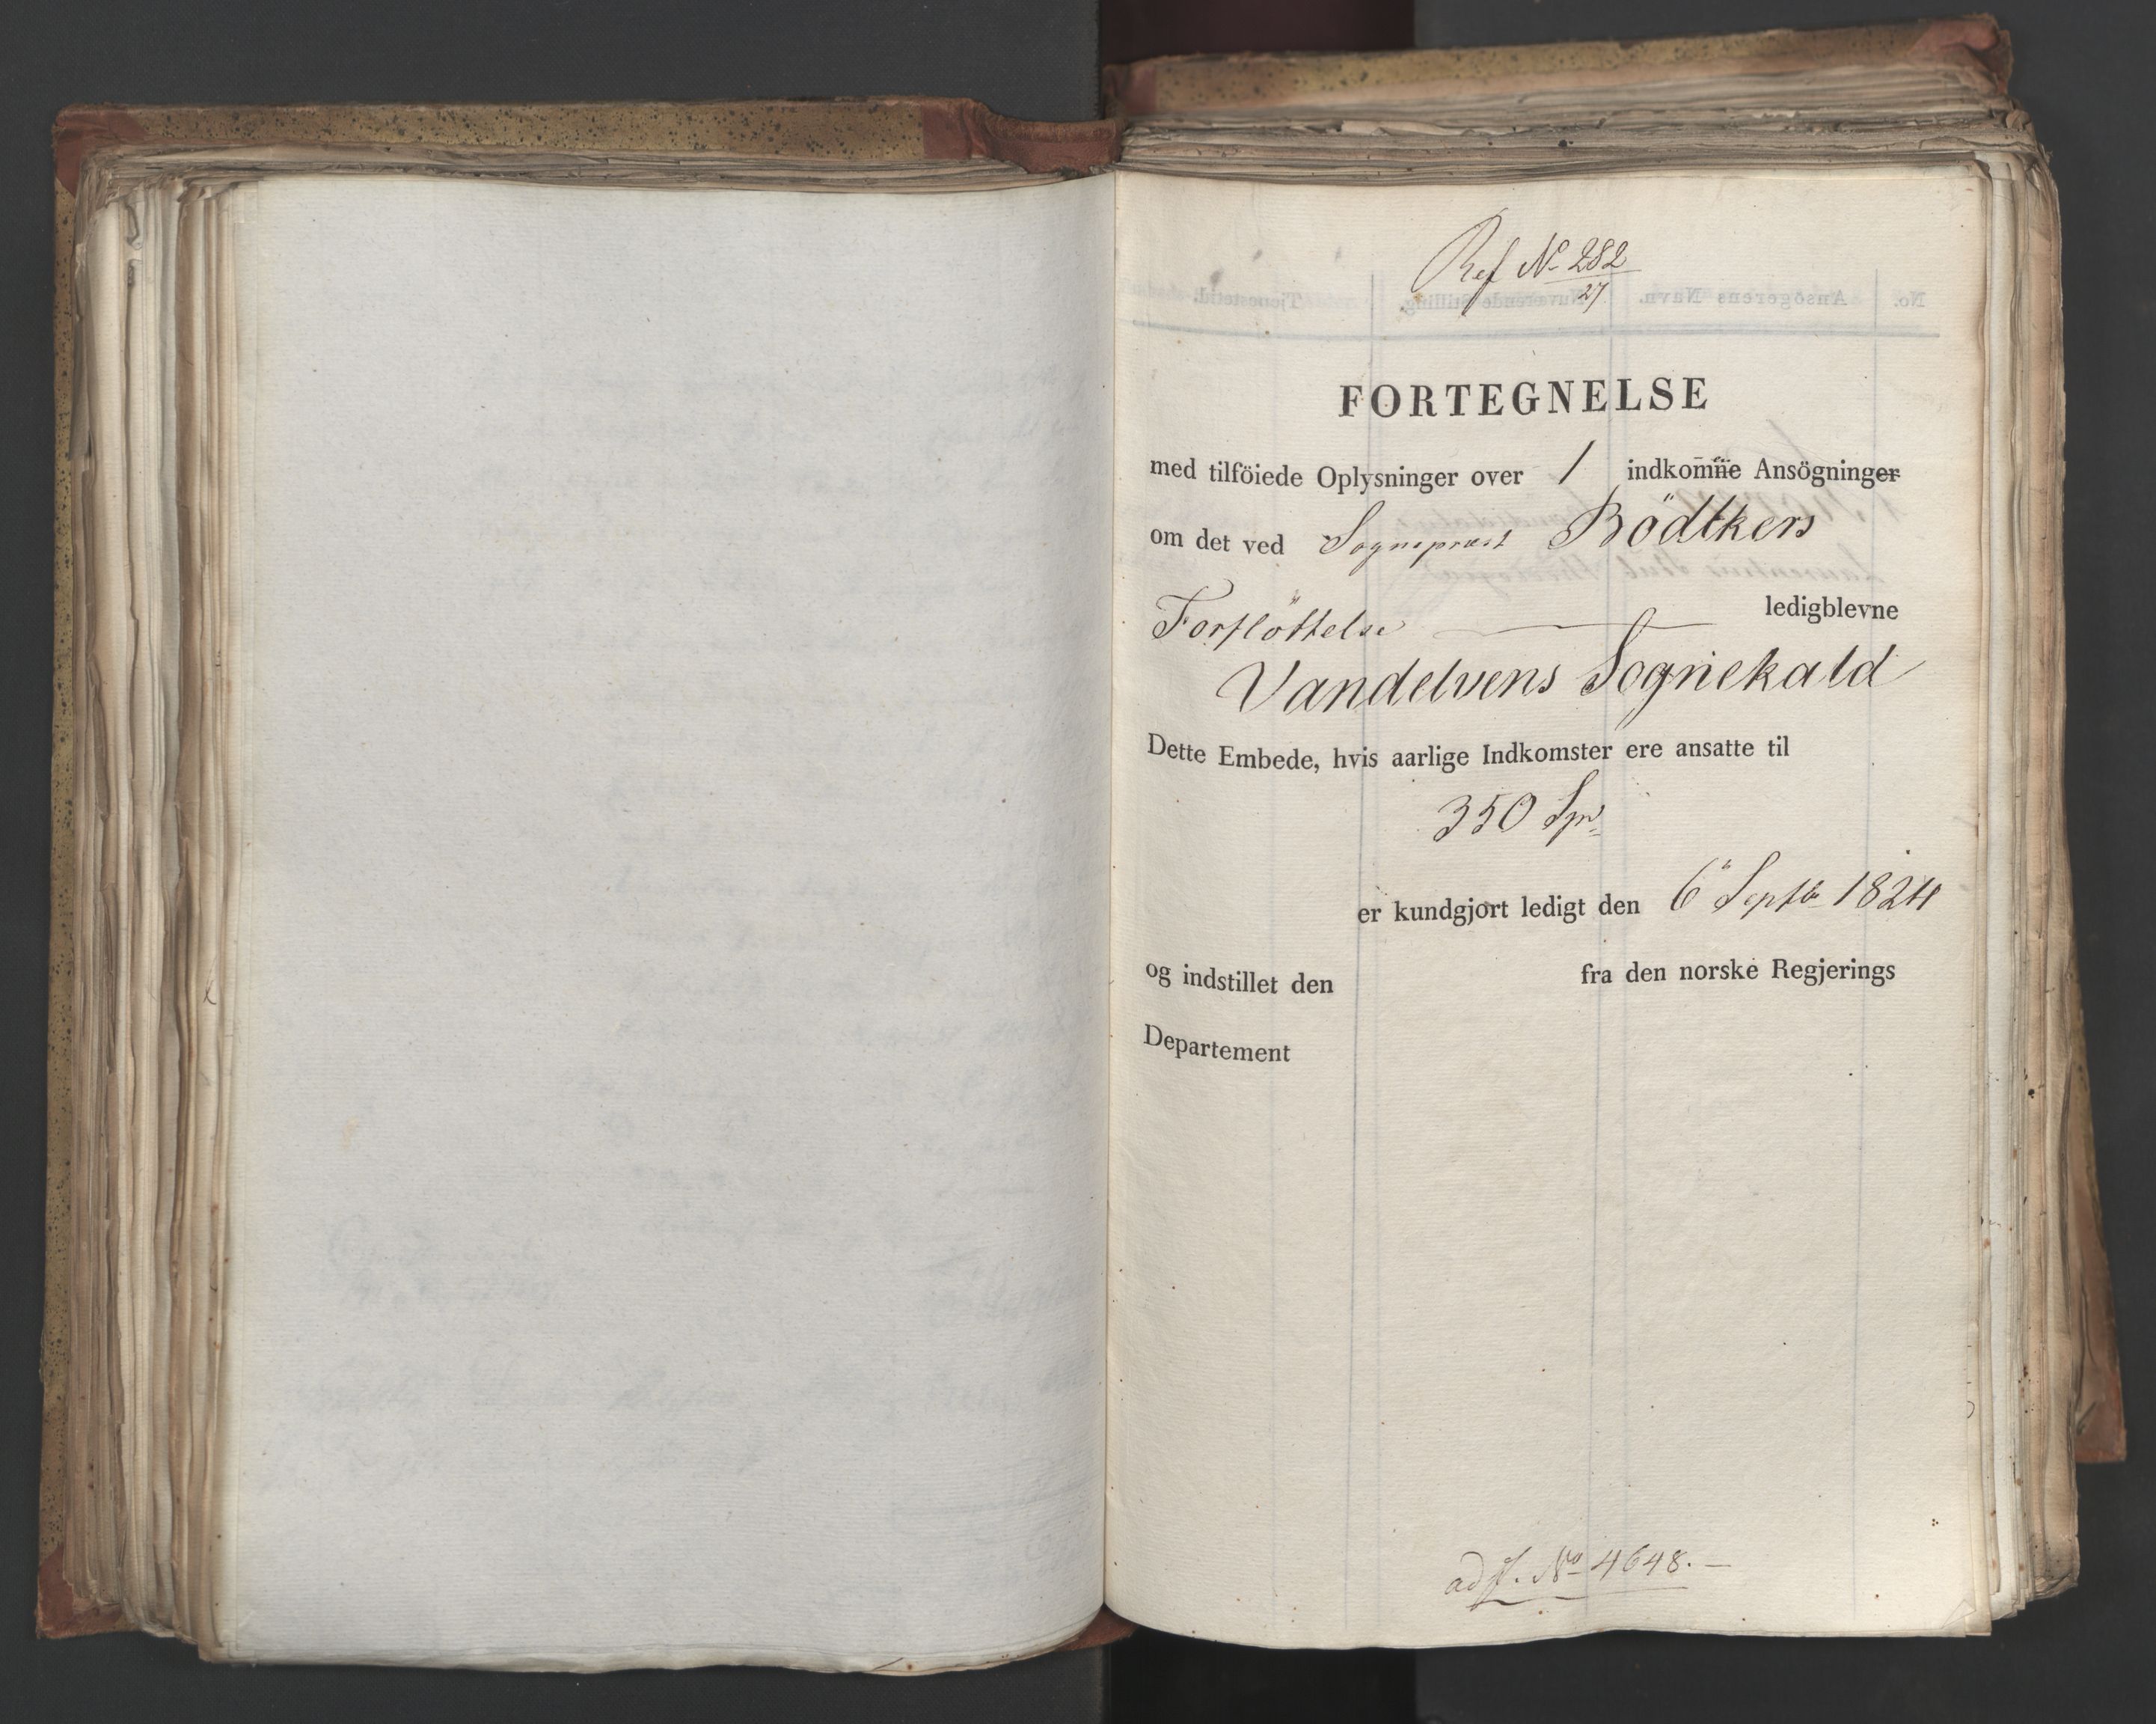 Ref No 282
27
FORTEGNELSE
med tilföiede Oplysninger over 1 indkomne Ansögninger
om det ved Sognepræst Bödtkers
Forflöttelse ledigblevne
Vandelvens Sognekald
Dette Embede, hvis aarlige Indkomster ere ansatte til
350 Spd
er kundgjort ledigt den 6te Septbr 1824
og indstillet den fra den norske Regjerings
Departement
No 4648. —